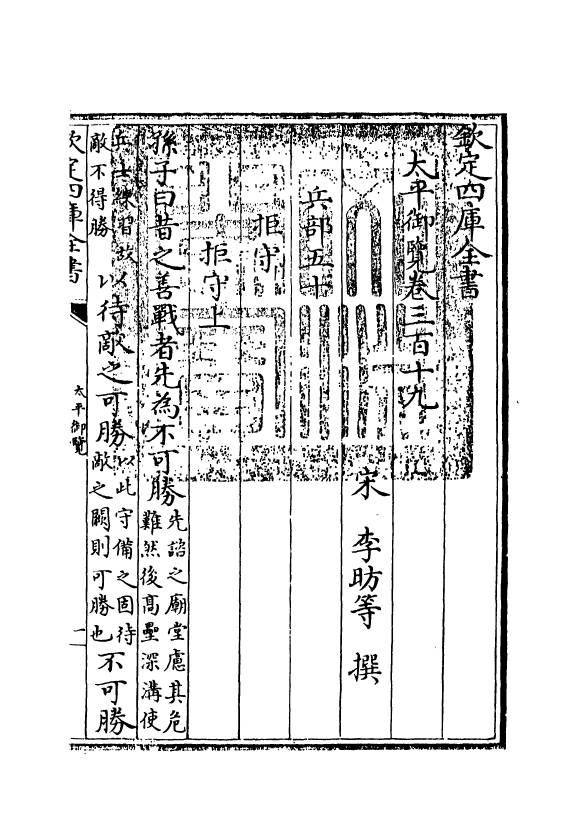 欽定四庫全書
太平御覽卷三百十九
宋 李昉等 撰
兵部五十
拒守
拒守上
孫子曰昔之善戰者先為不可勝先諮之廟堂慮其危難然後高壘深溝使
兵士練習故以敵不得勝以待敵之可勝以此守備之固待敵之闕則可勝也不可勝
欽定四庫全書
太平御覽
一